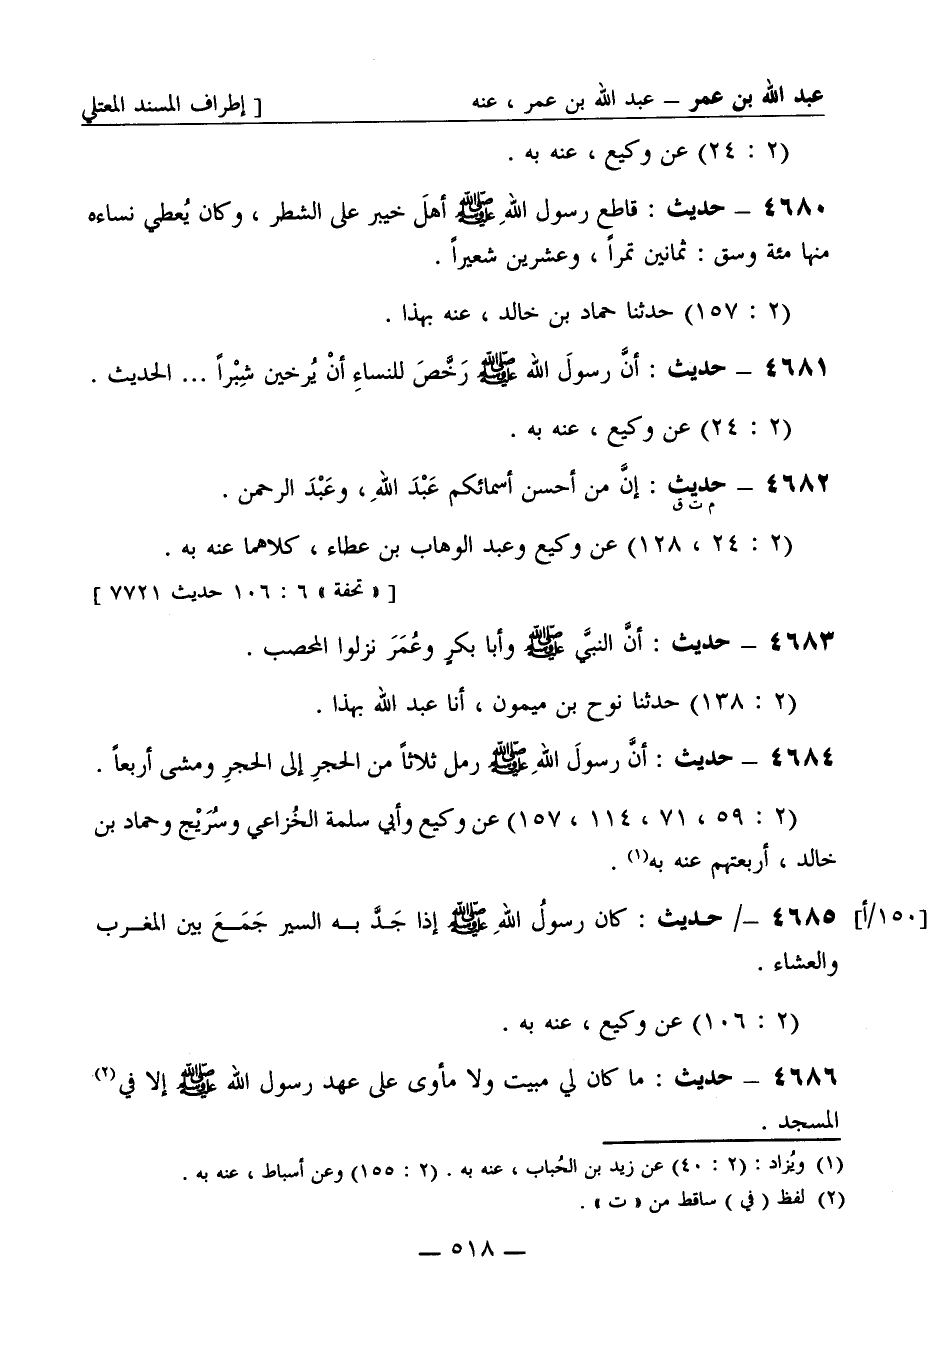 عبد الله بن عمر ــ عبد الله بن عمر ، عنه [ إطراف المسند المعتلي
(٢ : ٢٤) عن وكيع ، عنه به .
٤٦٨٠ ــ حديث : قاطع رسول اللهِ ﷺ أهلَ خيبر على الشطر ، وكان يُعطي نساءه
منها مئة وسق : ثمانين تمراً ، وعشرين شعيراً .
(٢ : ١٥٧) حدثنا حماد بن خالد ، عنه بهذا .
٤٦٨١ ــ حديث : أنَّ رسولَ الله ﷺ رَخَّصَ للنساءِ أنْ يُرخين شِبْراً ... الحديث .
(٢ : ٢٤) عن وكيع ، عنه به .
٤٦٨٢ ــ حديث : إنَّ من أحسن أسمائكم عَبْدَ اللهِ ، وعَبْدَ الرحمن .
م ت ق
(٢ : ٢٤ ، ١٢٨) عن وكيع وعبد الوهاب بن عطاء ، كلاهما عنه به .
[ « تحفة » ٦ : ١٠٦ حديث ٧٧٢١ ]
٤٦٨٣ ــ حديث : أنَّ النبيَّ ﷺ وأبا بكرٍ وعُمَرَ نزلوا المحصب .
(٢ : ١٣٨) حدثنا نوح بن ميمون ، أنا عبد الله بهذا .
٤٦٨٤ ــ حديث : أنَّ رسولَ اللهِ ﷺ رمل ثلاثاً من الحجرِ إلى الحجرِ ومشى أربعاً .
(٢ : ٥٩ ، ٧١ ، ١١٤ ، ١٥٧) عن وكيع وأبي سلمة الخُزاعي وسُرَيْج وحماد بن
خالد ، أربعتهم عنه به(١) .
[١٥٠/أ] ٤٦٨٥ ــ/ حديث : كان رسولُ اللهِ ﷺ إذا جَدَّ به السير جَمَعَ بين المغرب
والعشاء .
(٢ : ١٠٦) عن وكيع ، عنه به .
٤٦٨٦ ــ حديث : ما كان لي مبيت ولا مأوى على عهد رسول الله ﷺ إلا في(٢)
المسجد .
(١) ويُزاد : (٢ : ٤٠) عن زيد بن الحُباب ، عنه به . (٢ : ١٥٥) وعن أسباط ، عنه به .
(٢) لفظ ( في ) ساقط من « ت » .
ــ ٥١٨ ــ